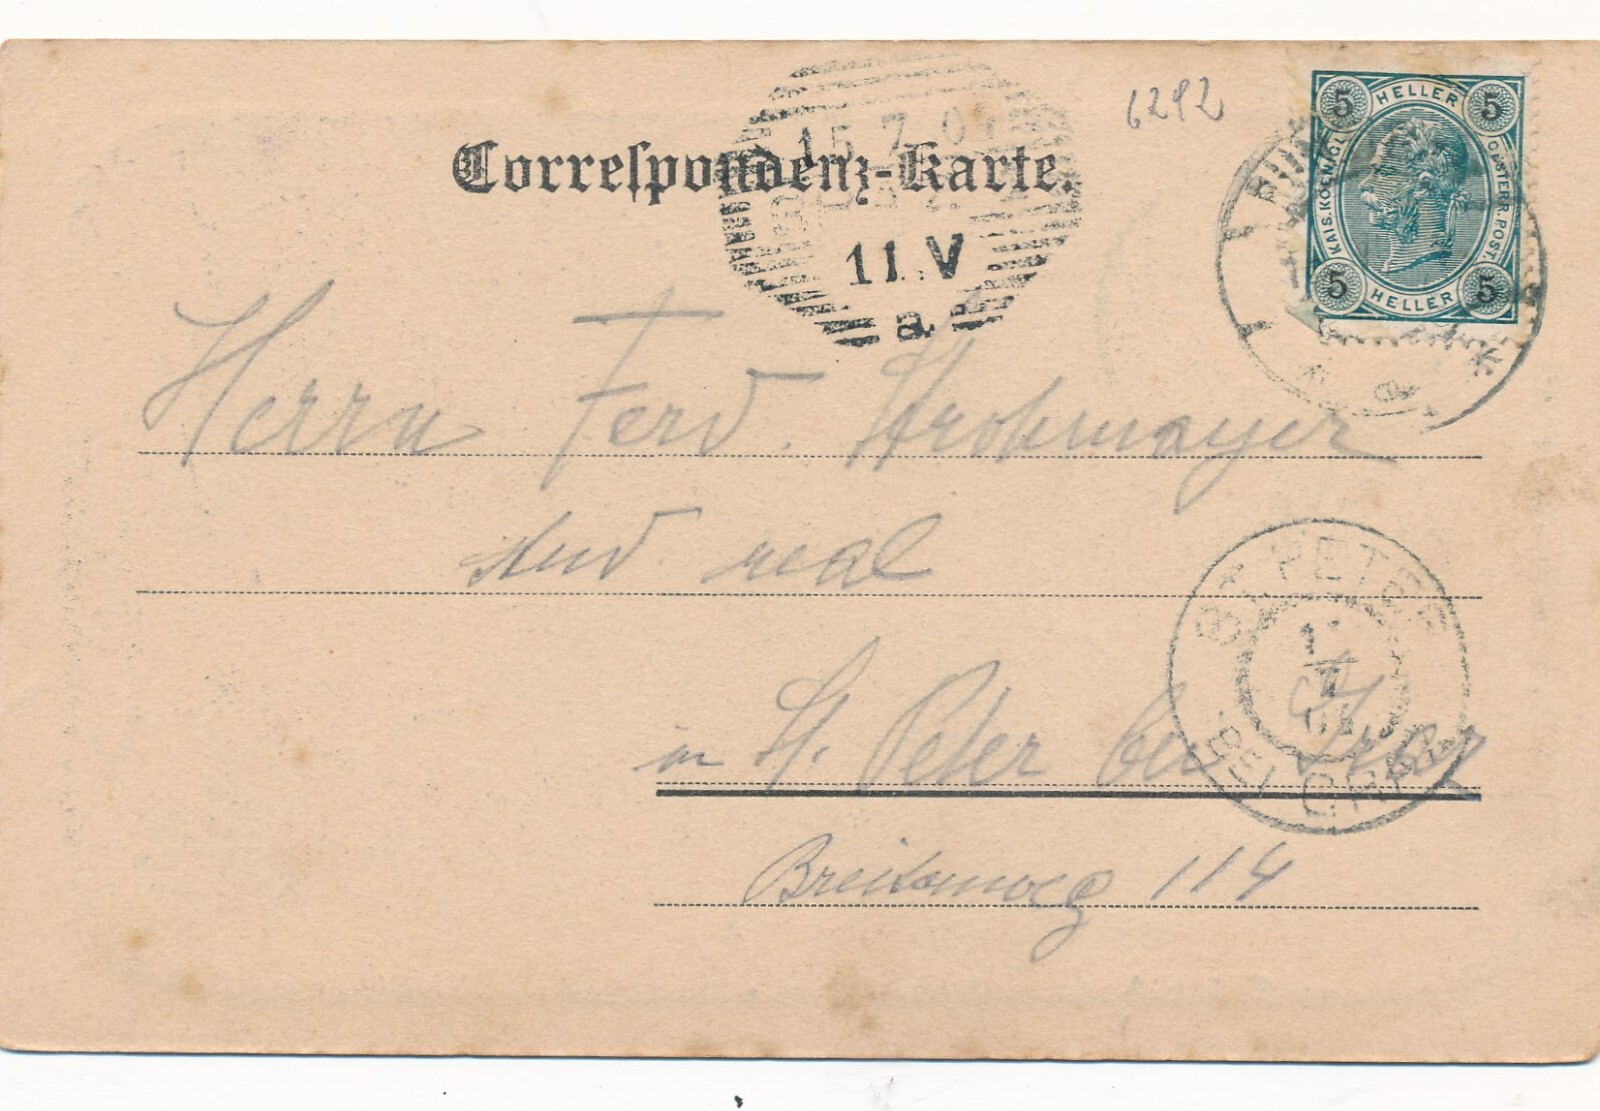 6292
5 HELLER 5
KAIS. KOENIGL. OESTERR. POST.
5 HELLER 5
Correspondenz-Karte.
15.7.01
11.V
a
Herrn Ferd. Strohmayer
stud. real
ST. PETER
BEI GRAZ
in St. Peter bei Graz
114